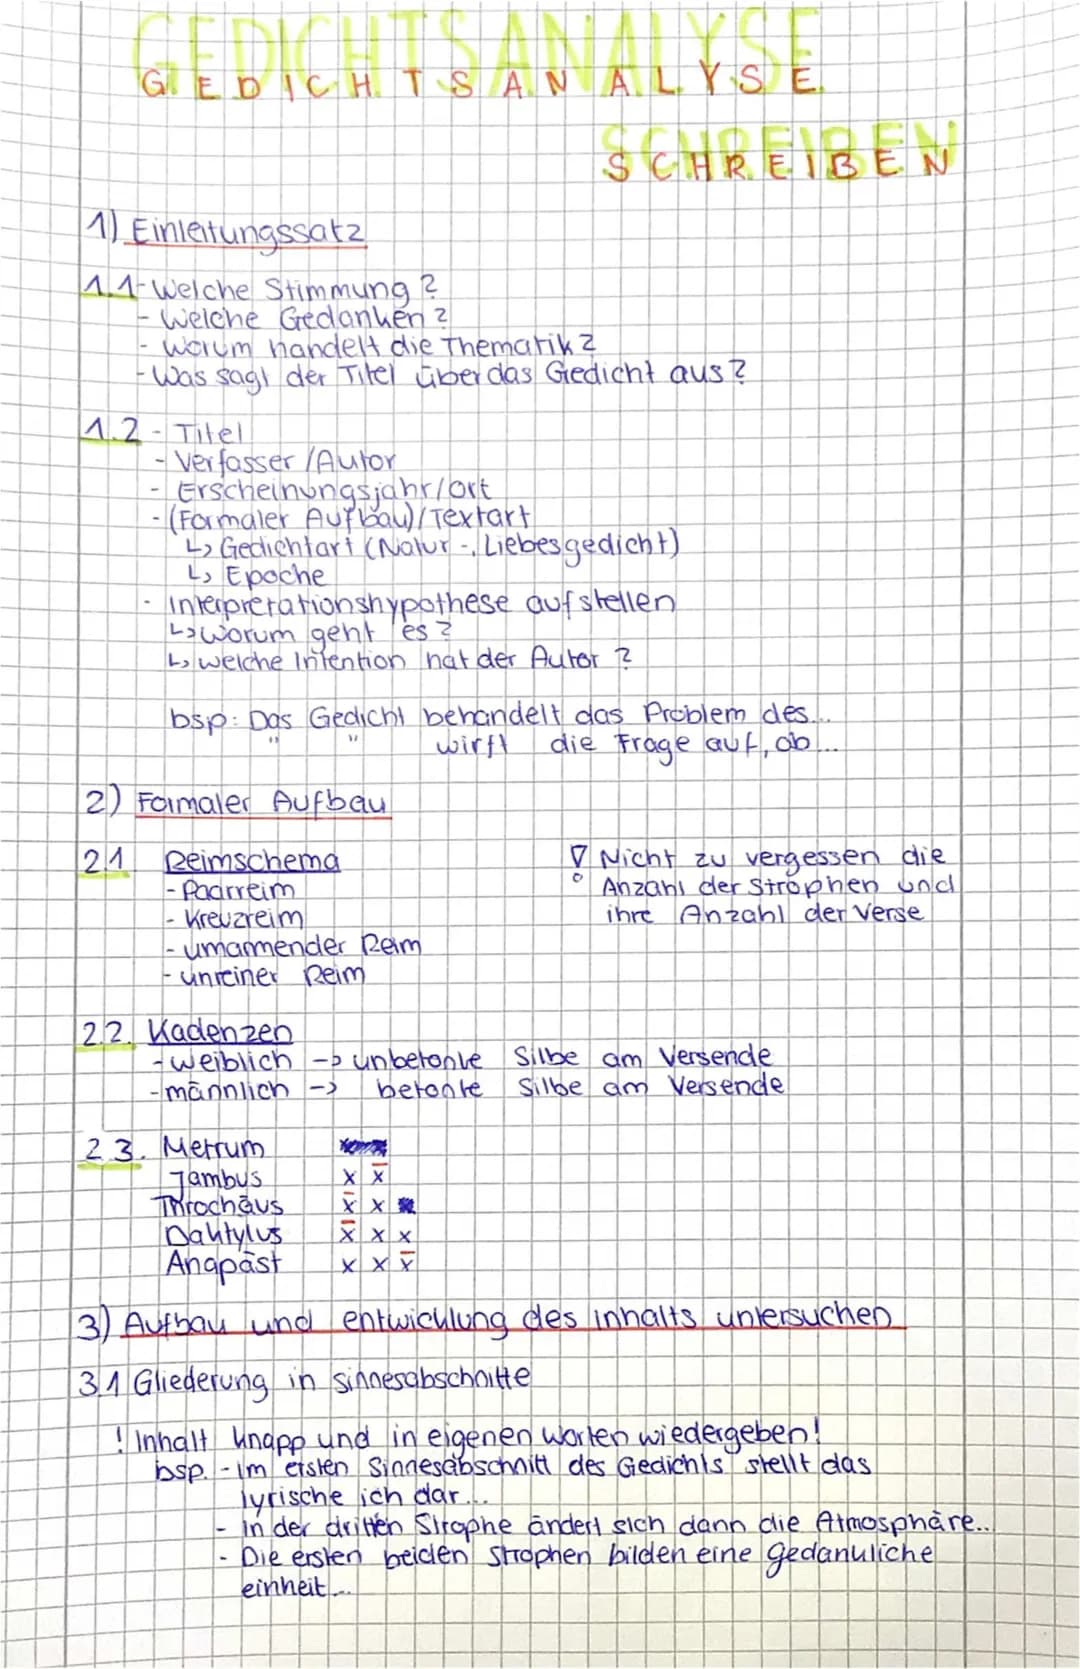 GEDICHTSANALYSE
SCHREIBEN
1) Einleitungssatz
1.1 - Welche Stimmung?
- Welche Gedanken?
- Worum handelt die Thematik?
- Was sagt der Titel über das Gedicht aus?
1.2 - Titel
- Verfasser/Autor
- Erscheinungsjahr/ort
- (Formaler Aufbau)/Textart
↳ Gedichtart (Natur-, Liebesgedicht)
↳ Epoche
- Interpretationshypothese aufstellen
↳ Worum geht es?
↳ welche Intention hat der Autor?
bsp: Das Gedicht behandelt das Problem des...
" " wirft die Frage auf, ob...
2) Formaler Aufbau
2.1 Reimschema
- Paarreim
- Kreuzreim
- umarmender Reim
- unreiner Reim
! Nicht zu vergessen die
Anzahl der Strophen und
ihre Anzahl der Verse
2.2. Kadenzen
- weiblich -> unbetonte Silbe am Versende
- männlich -> betonte Silbe am Versende
2.3. Metrum
Jambus x x̄
Throchäus x̄ x
Daktylus x̄ x x
Anapäst x x x̄
3) Aufbau und entwicklung des inhalts untersuchen
3.1 Gliederung in sinnesabschnitte
! Inhalt knapp und in eigenen Worten wiedergeben!
bsp. - Im ersten Sinnesabschnitt des Gedichts stellt das
lyrische ich dar...
- In der dritten Strophe ändert sich dann die Atmosphäre..
- Die ersten beiden Strophen bilden eine gedankliche
einheit...